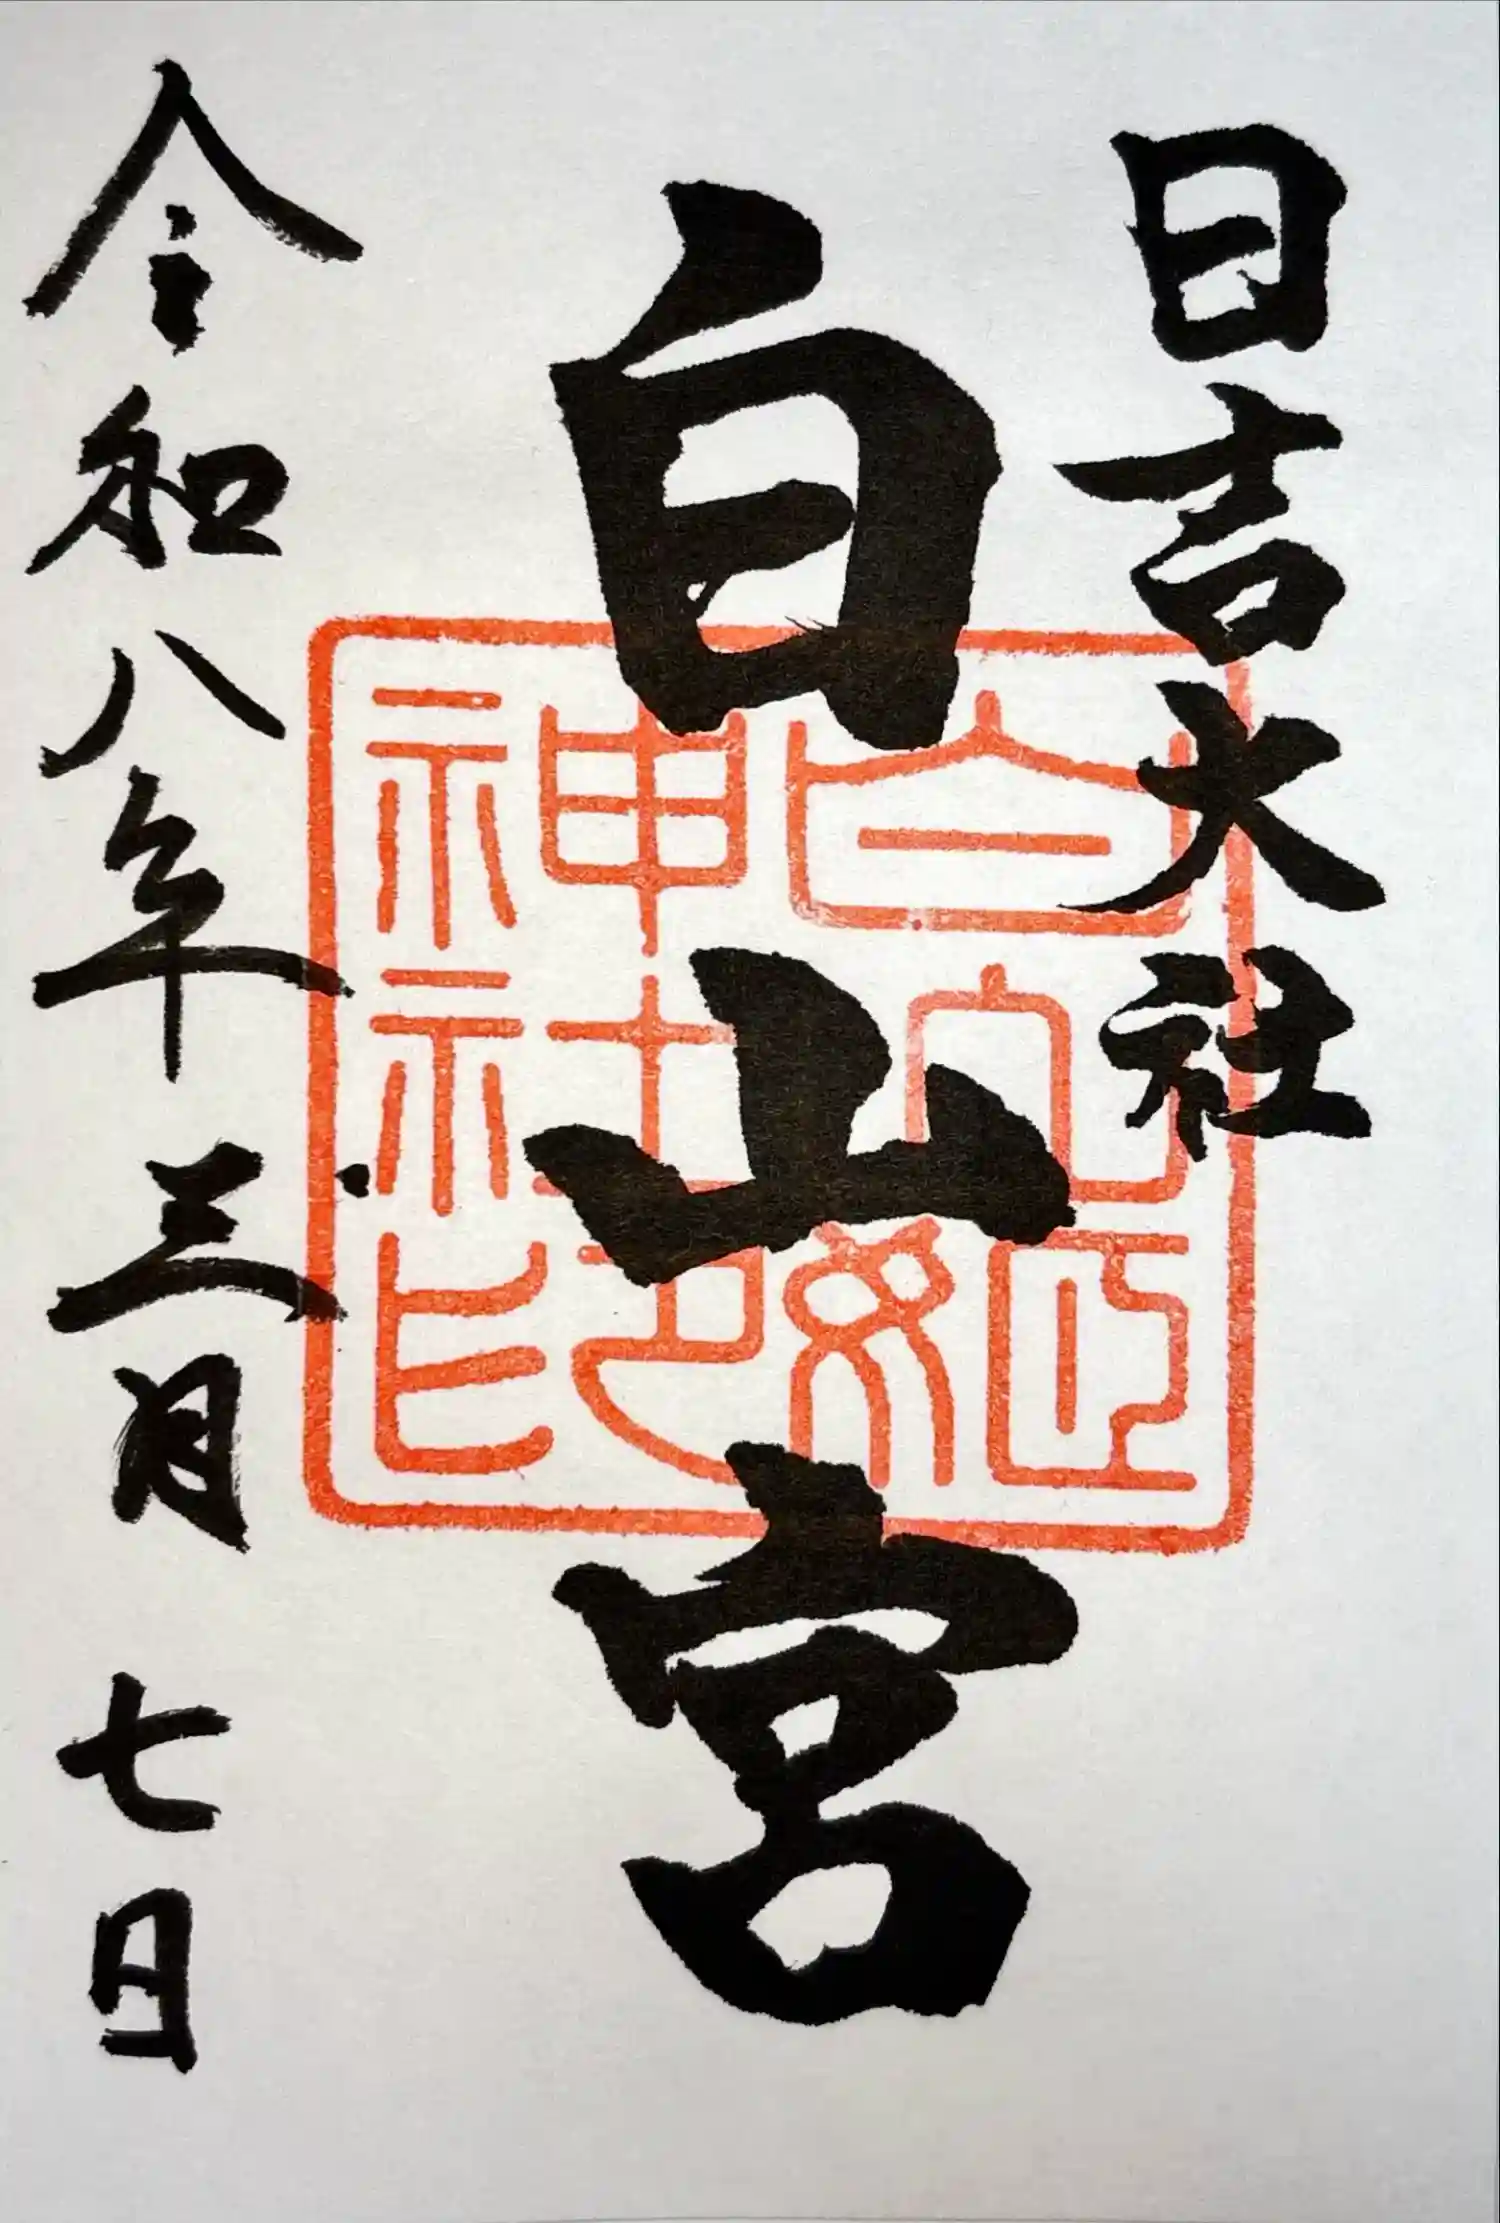 日吉大社
白山宮
令和八年三月七日
白山姫神社印